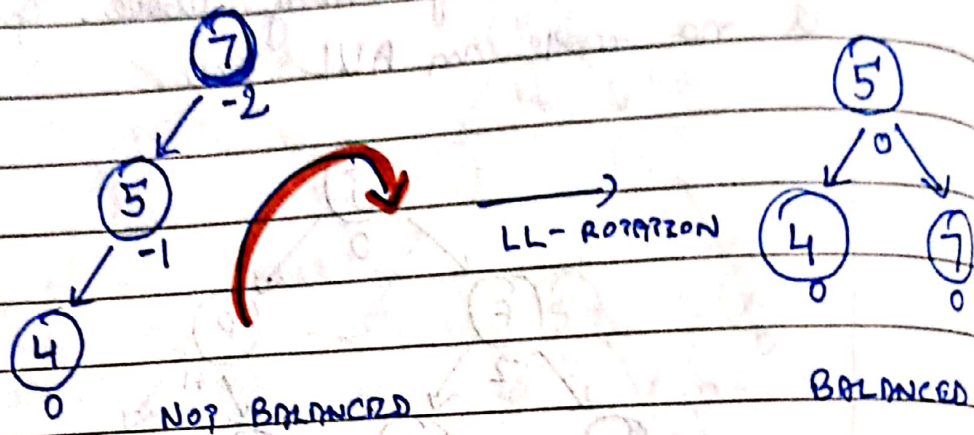 7
-2
5
-1
4
0
NOT BALANCED
LL-ROTATION
5
0
4
0
7
0
BALANCED